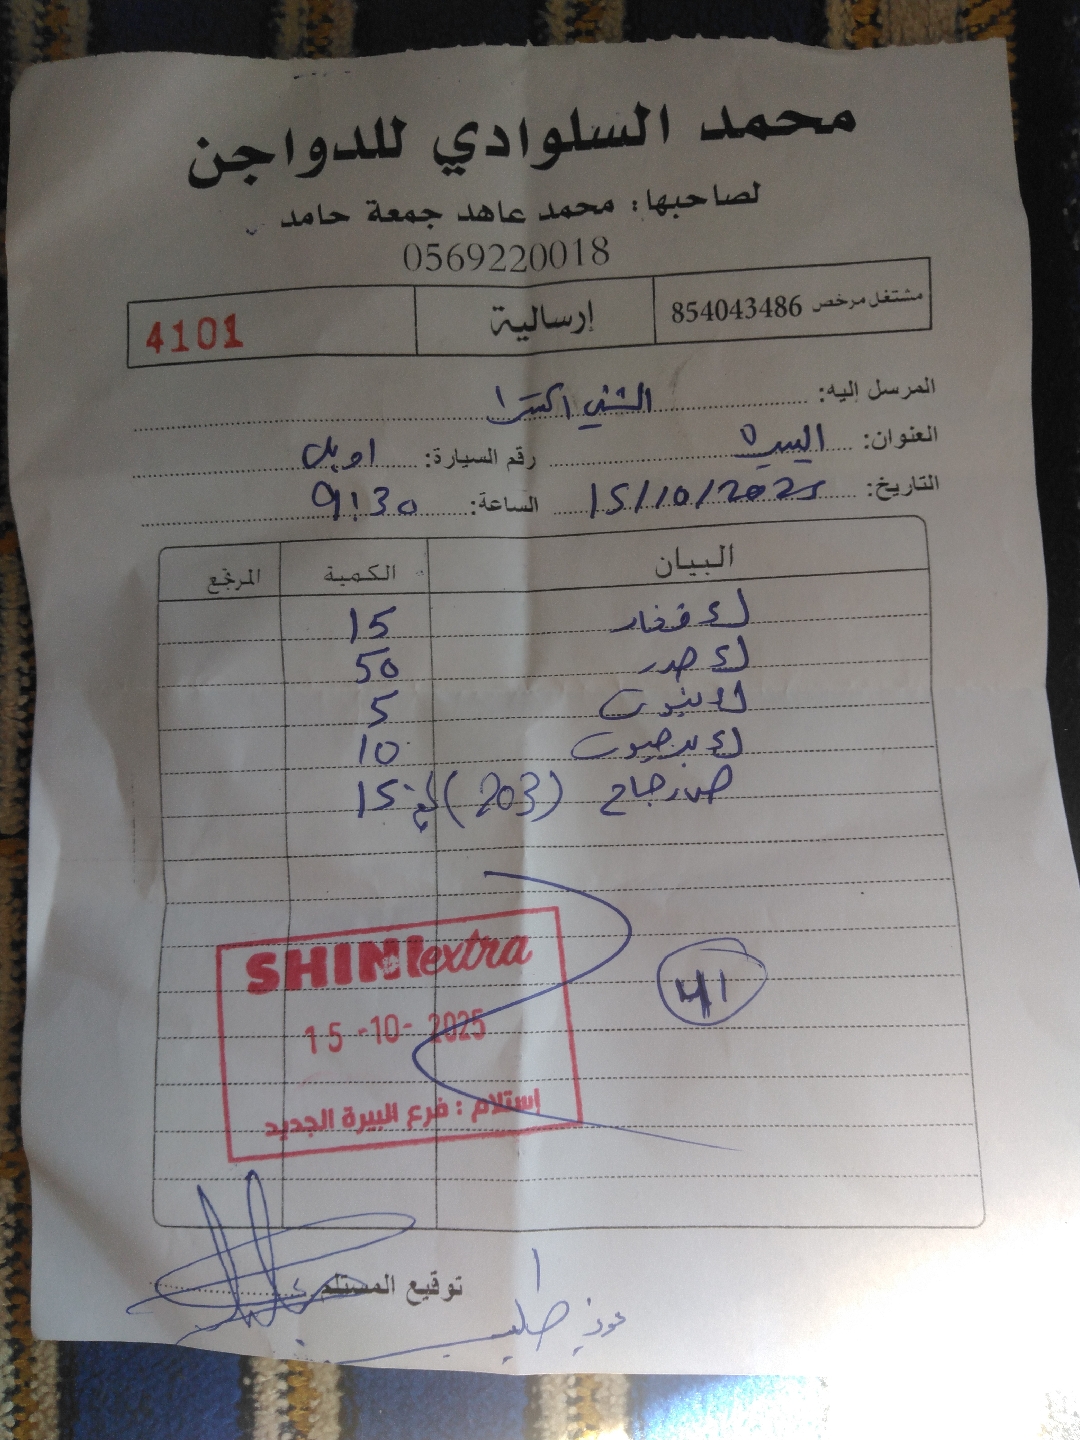 محمد السلوادي للدواجن
لصاحبها: محمد عاهد جمعة حامد
0569220018
مشتغل مرخص 854043486 إرسالية 4101
المرسل إليه: الشني اكسترا
العنوان: البيرة رقم السيارة: اوبل
التاريخ: 15/10/2025 الساعة: 9:30
البيان الكمية المرتجع
15
صدر 50
5
10
دجاج (203) 15
SHINI extra
15-10-2025
41
إستلام : فرع البيرة الجديد
توقيع المستلم